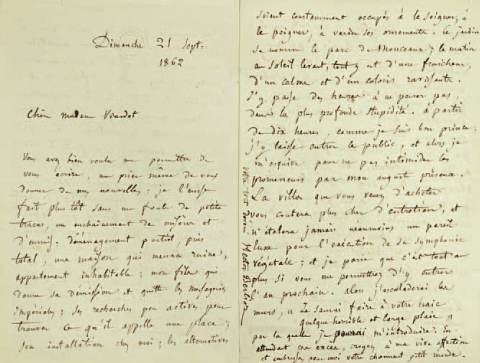 Dimanche 21 Sept.
1862
Chère madame Viardot
Vous avez bien voulu me permettre de
vous écrire, me prier même de vous
donner de mes nouvelles; je l'eusse
fait plus tôt sans une foule de petits
tracas, un embarquement de misères et
d'ennuis; déménagement partiel, puis
total, une maison qui menace ruine,
appartement inhabitable; mon fils qui
donne sa démission et quitte les messageries
impériales; ses recherches peu actives pour
trouver ce qu'il appelle une place;
son installation chez moi; les alternatives
soient constamment occupés à la soigner, à
la peigner, à varier ses ornements. Le jardin
se nomme le parc de Monceaux; le matin
au soleil levant, tout y est d'une fraîcheur,
d'un calme et d'un coloris ravissants.
J'y passe des heures à ne penser pas,
dans la plus profonde stupidité. à partir
de dix heures, comme je suis bon prince,
j'y laisse entrer le public, et alors je
m'esquive pour ne pas intimider les
promeneurs par mon auguste présence.
La villa que vous venez d'acheter
vous coûtera plus cher d'entretien, et
n'étalera jamais néanmoins un pareil
luxe pour l'exécution de sa symphonie
végétale; et je parie que
plus si vous me permettrez d'y entrer
l'an prochain. Alors j'escaladerai les
murs, ou je saurai faire à votre haie
quelque horrible et large plaie
par laquelle je pourrai m'introduire. En
attendant croyez à ma vive affection
et embrassez pour moi votre charmant petit monde.
Hector Berlioz